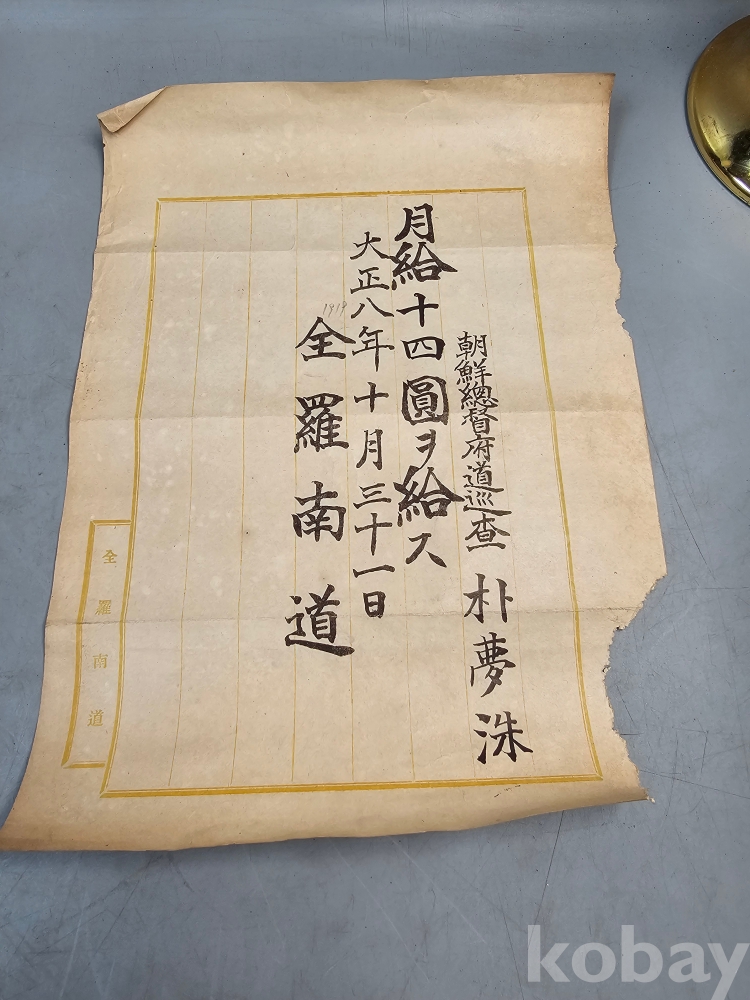 朝鮮總督府道巡査 朴夢洙
月給十四圓ヲ給ス
大正八年十月三十一日
1919
全羅南道
全羅南道
kobay